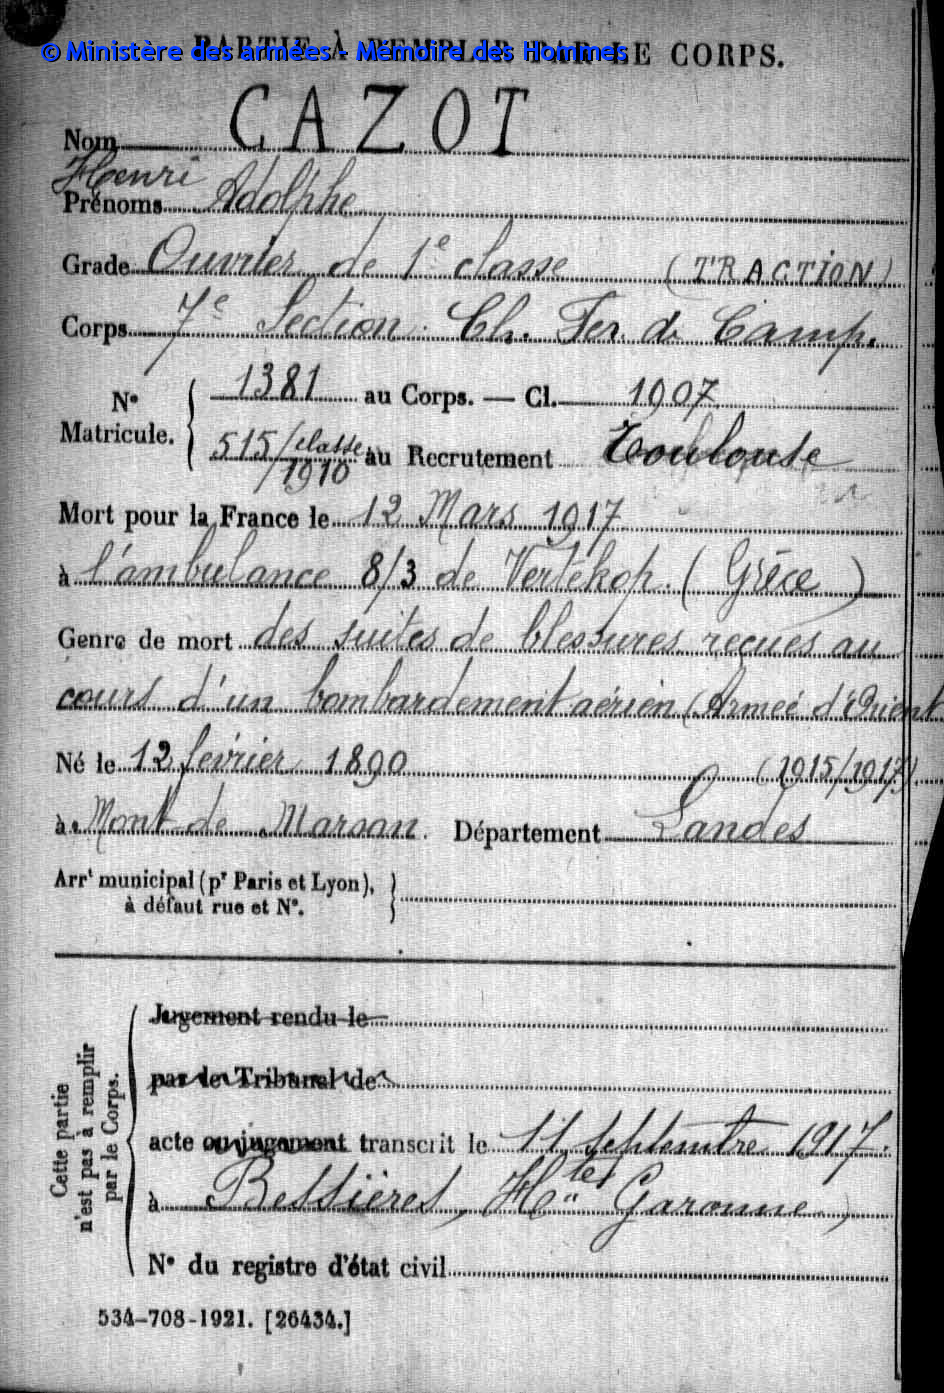 © Ministère des armées - Mémoire des Hommes
PARTIE À REMPLIR PAR LE CORPS.
Nom CAZOT
Henri
Prénoms Adolphe
Grade Ouvrier de 1e classe (TRACTION)
Corps 7e Section Ch. Fer de Camp.
No Matricule. { 1381 au Corps. — Cl. 1907
515/classe 1910 au Recrutement Toulouse
Mort pour la France le 12 Mars 1917
à l'ambulance 8/3 de Vertékop. (Grèce)
Genre de mort des suites de blessures reçues au
cours d'un bombardement aérien (Armée d'Orient
Né le 12 février 1890 (1915/1917).
à Mont-de Marsan. Département Landes
Arrt municipal (pr Paris et Lyon),
à défaut rue et No.
Cette partie
n'est pas à remplir
par le Corps.
Jugement rendu le
par le Tribunal de
acte ou jugement transcrit le 11 septembre 1917.
à Bessières, Hte Garonne
No du registre d'état civil
534-708-1921. [26434.]